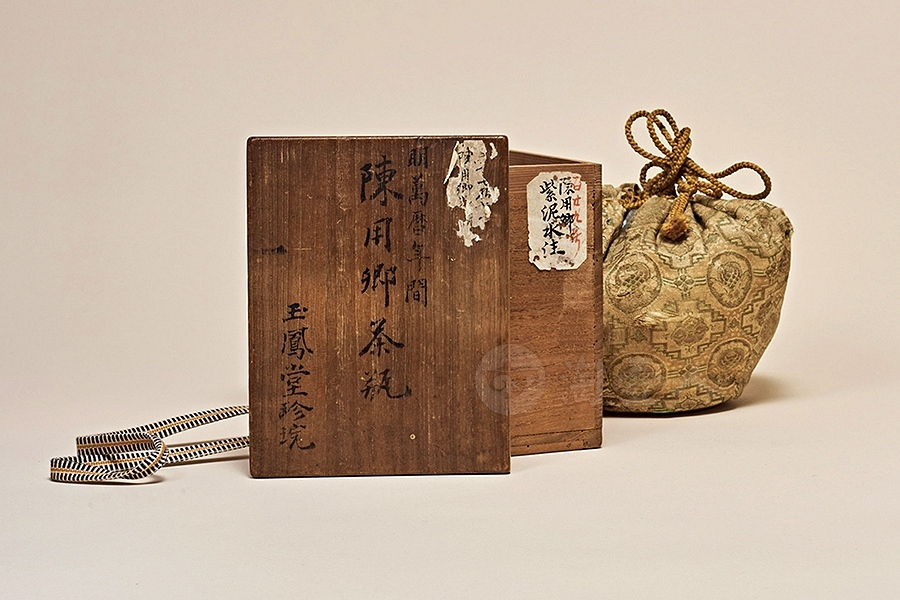 明萬暦年間
陳用卿茶瓶
玉鳳堂珍玩
陳用卿
百廿九号
陳用卿
紫泥水注